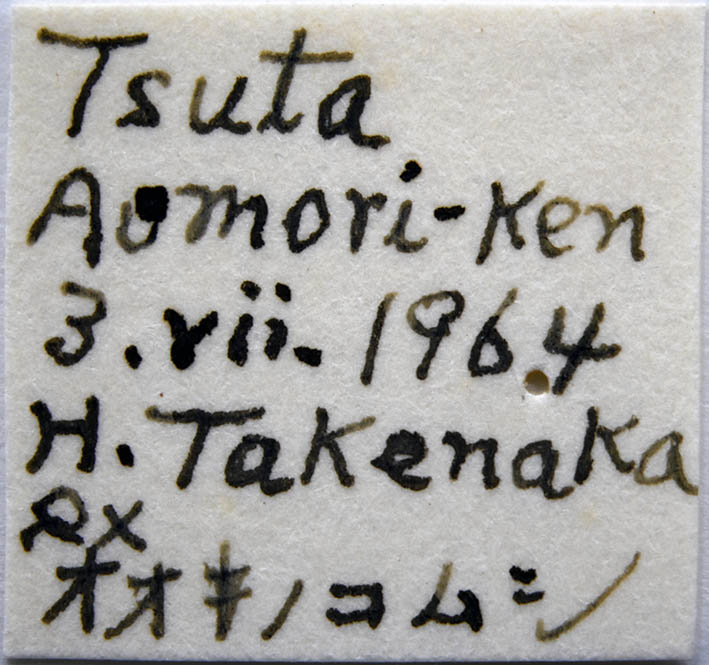 Tsuta
Aomori-Ken
3.vii.1964
H. Takenaka
ex
オオキノコムシ